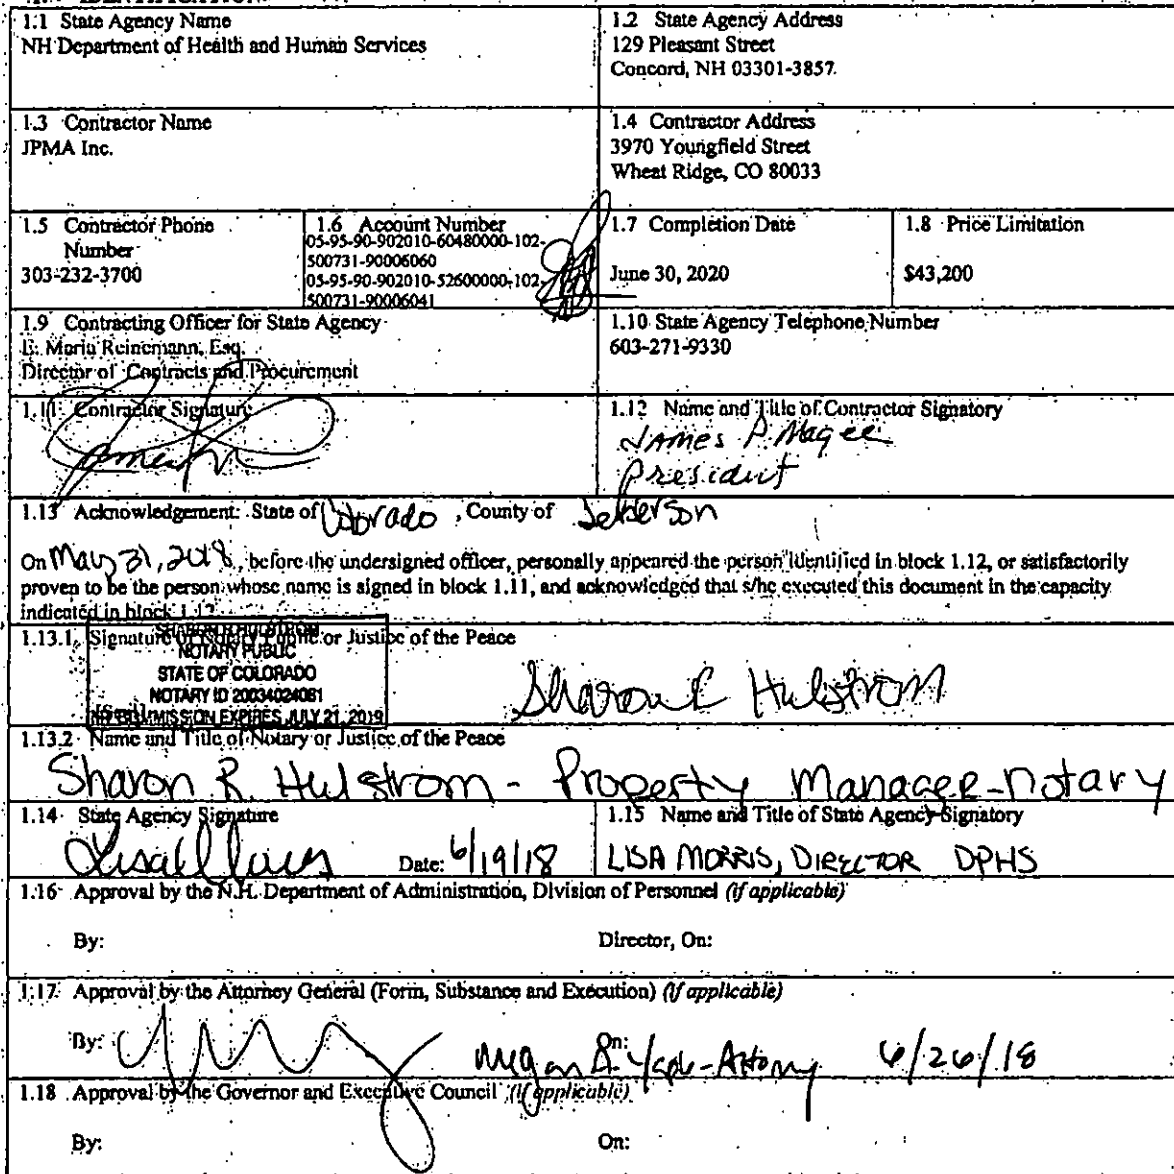 1.1 State Agency Name
NH Department of Health and Human Services
1.2 State Agency Address
129 Pleasant Street
Concord, NH 03301-3857
1.3 Contractor Name
JPMA Inc.
1.4 Contractor Address
3970 Youngfield Street
Wheat Ridge, CO 80033
1.5 Contractor Phone
Number
303-232-3700
1.6 Account Number
05-95-90-902010-60480000-102-
500731-90006060
05-95-90-902010-52600000-102-
500731-90006041
1.7 Completion Date
June 30, 2020
1.8 Price Limitation
$43,200
1.9 Contracting Officer for State Agency
E. Maria Reinemann, Esq.
Director of Contracts and Procurement
1.10 State Agency Telephone Number
603-271-9330
1.11 Contractor Signature
1.12 Name and Title of Contractor Signatory
James P. Magee
President
1.13 Acknowledgement: State of Colorado, County of Jefferson
On May 31, 2018, before the undersigned officer, personally appeared the person identified in block 1.12, or satisfactorily
proven to be the person whose name is signed in block 1.11, and acknowledged that s/he executed this document in the capacity
indicated in block 1.12.
1.13.1 Signature of Notary Public or Justice of the Peace
SHARON R HULSTROM
NOTARY PUBLIC
STATE OF COLORADO
NOTARY ID 20034024081
MY COMMISSION EXPIRES JULY 21, 2019
Sharon R Hulstrom
1.13.2 Name and Title of Notary or Justice of the Peace
Sharon R. Hulstrom - Property Manager-Notary
1.14 State Agency Signature
Date: 6/19/18
1.15 Name and Title of State Agency Signatory
LISA MORRIS, DIRECTOR DPHS
1.16 Approval by the N.H. Department of Administration, Division of Personnel (if applicable)
By:
Director, On:
1.17 Approval by the Attorney General (Form, Substance and Execution) (if applicable)
By:
On:
Megan A. Yaple-Attorney 6/26/18
1.18 Approval by the Governor and Executive Council (if applicable)
By:
On: